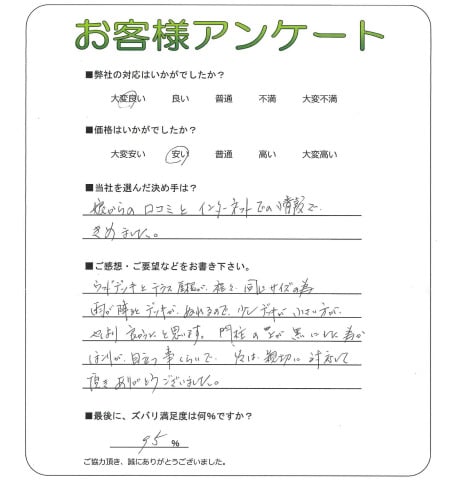 お客様アンケート
■弊社の対応はいかがでしたか？
大変良い 良い 普通 不満 大変不満
■価格はいかがでしたか？
大変安い 安い 普通 高い 大変高い
■当社を選んだ決め手は？
娘からの口コミとインターネットでの情報で
きめました。
■ご感想・ご要望などをお書き下さい。
ウッドデッキとテラス屋根が、同じサイズの為
雨が降るとデッキが、ぬれるので、少しデッキが小さい方が
と思います。門柱の 黒にした為か
ホコリが、目立つ事くらいで、 親切に対応して
頂きありがとうございました。
■最後に、ズバリ満足度は何％ですか？
95 ％
ご協力頂き、誠にありがとうございました。